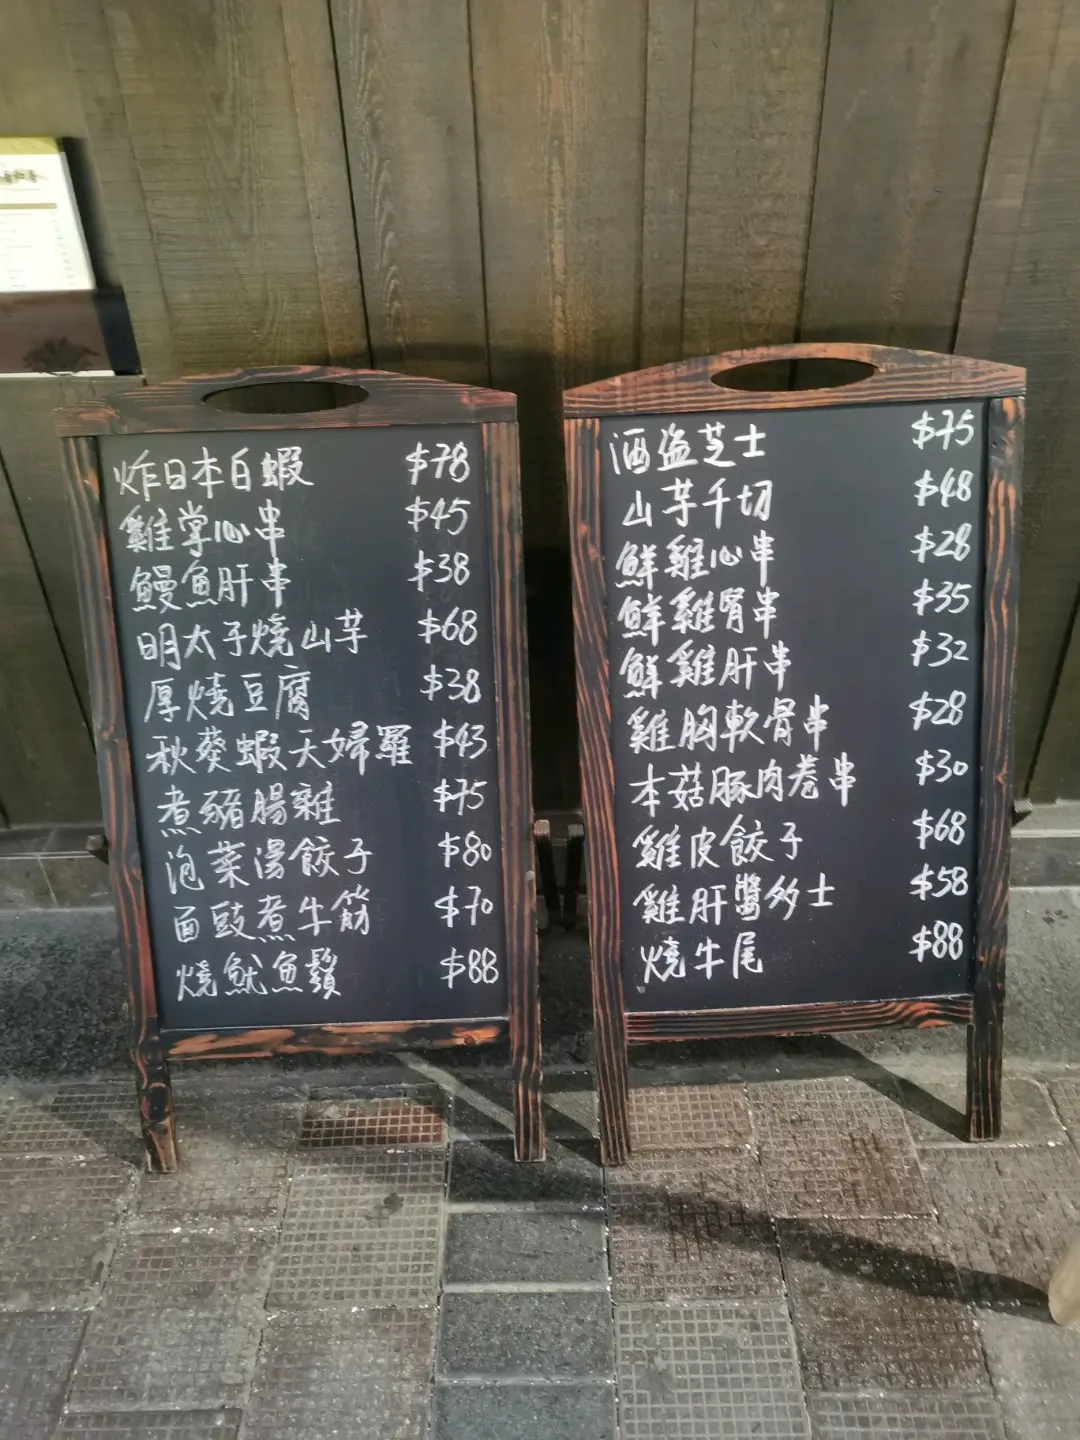 炸日本白蝦 $78
雞掌心串 $45
鰻魚肝串 $38
明太子燒山芋 $68
厚燒豆腐 $38
秋葵蝦天婦羅 $43
煮豬腸雜 $75
泡菜湯餃子 $80
面豉煮牛筋 $70
燒魷魚鬚 $88
酒盗芝士 $75
山芋千切 $48
鮮雞心串 $28
鮮雞腎串 $35
鮮雞肝串 $32
雞胸軟骨串 $28
本菇豚肉卷串 $30
雞皮餃子 $68
雞肝醬多士 $58
燒牛尾 $88